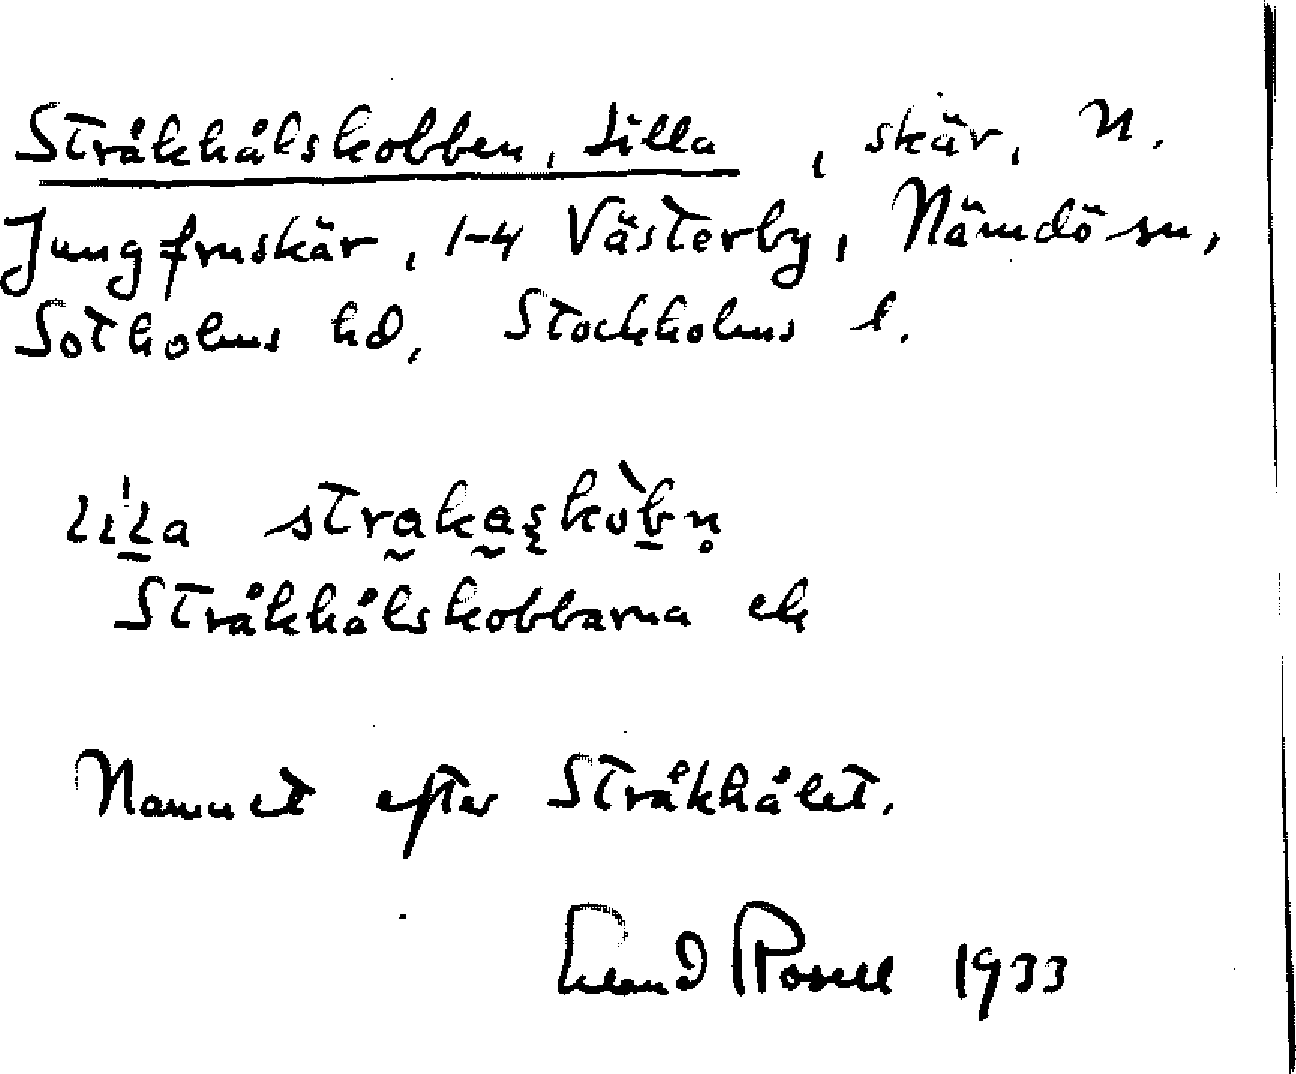 Stråkhålskobben, Lilla, skär, N.
Jungfruskär, 1-4 Västerby, Nämdö sn,
Sotholms hd, Stockholms l.
lila strakaskòbn
Stråkhålskobbarna ek
Namnet efter Stråkhålet.
Erland Rosell 1933